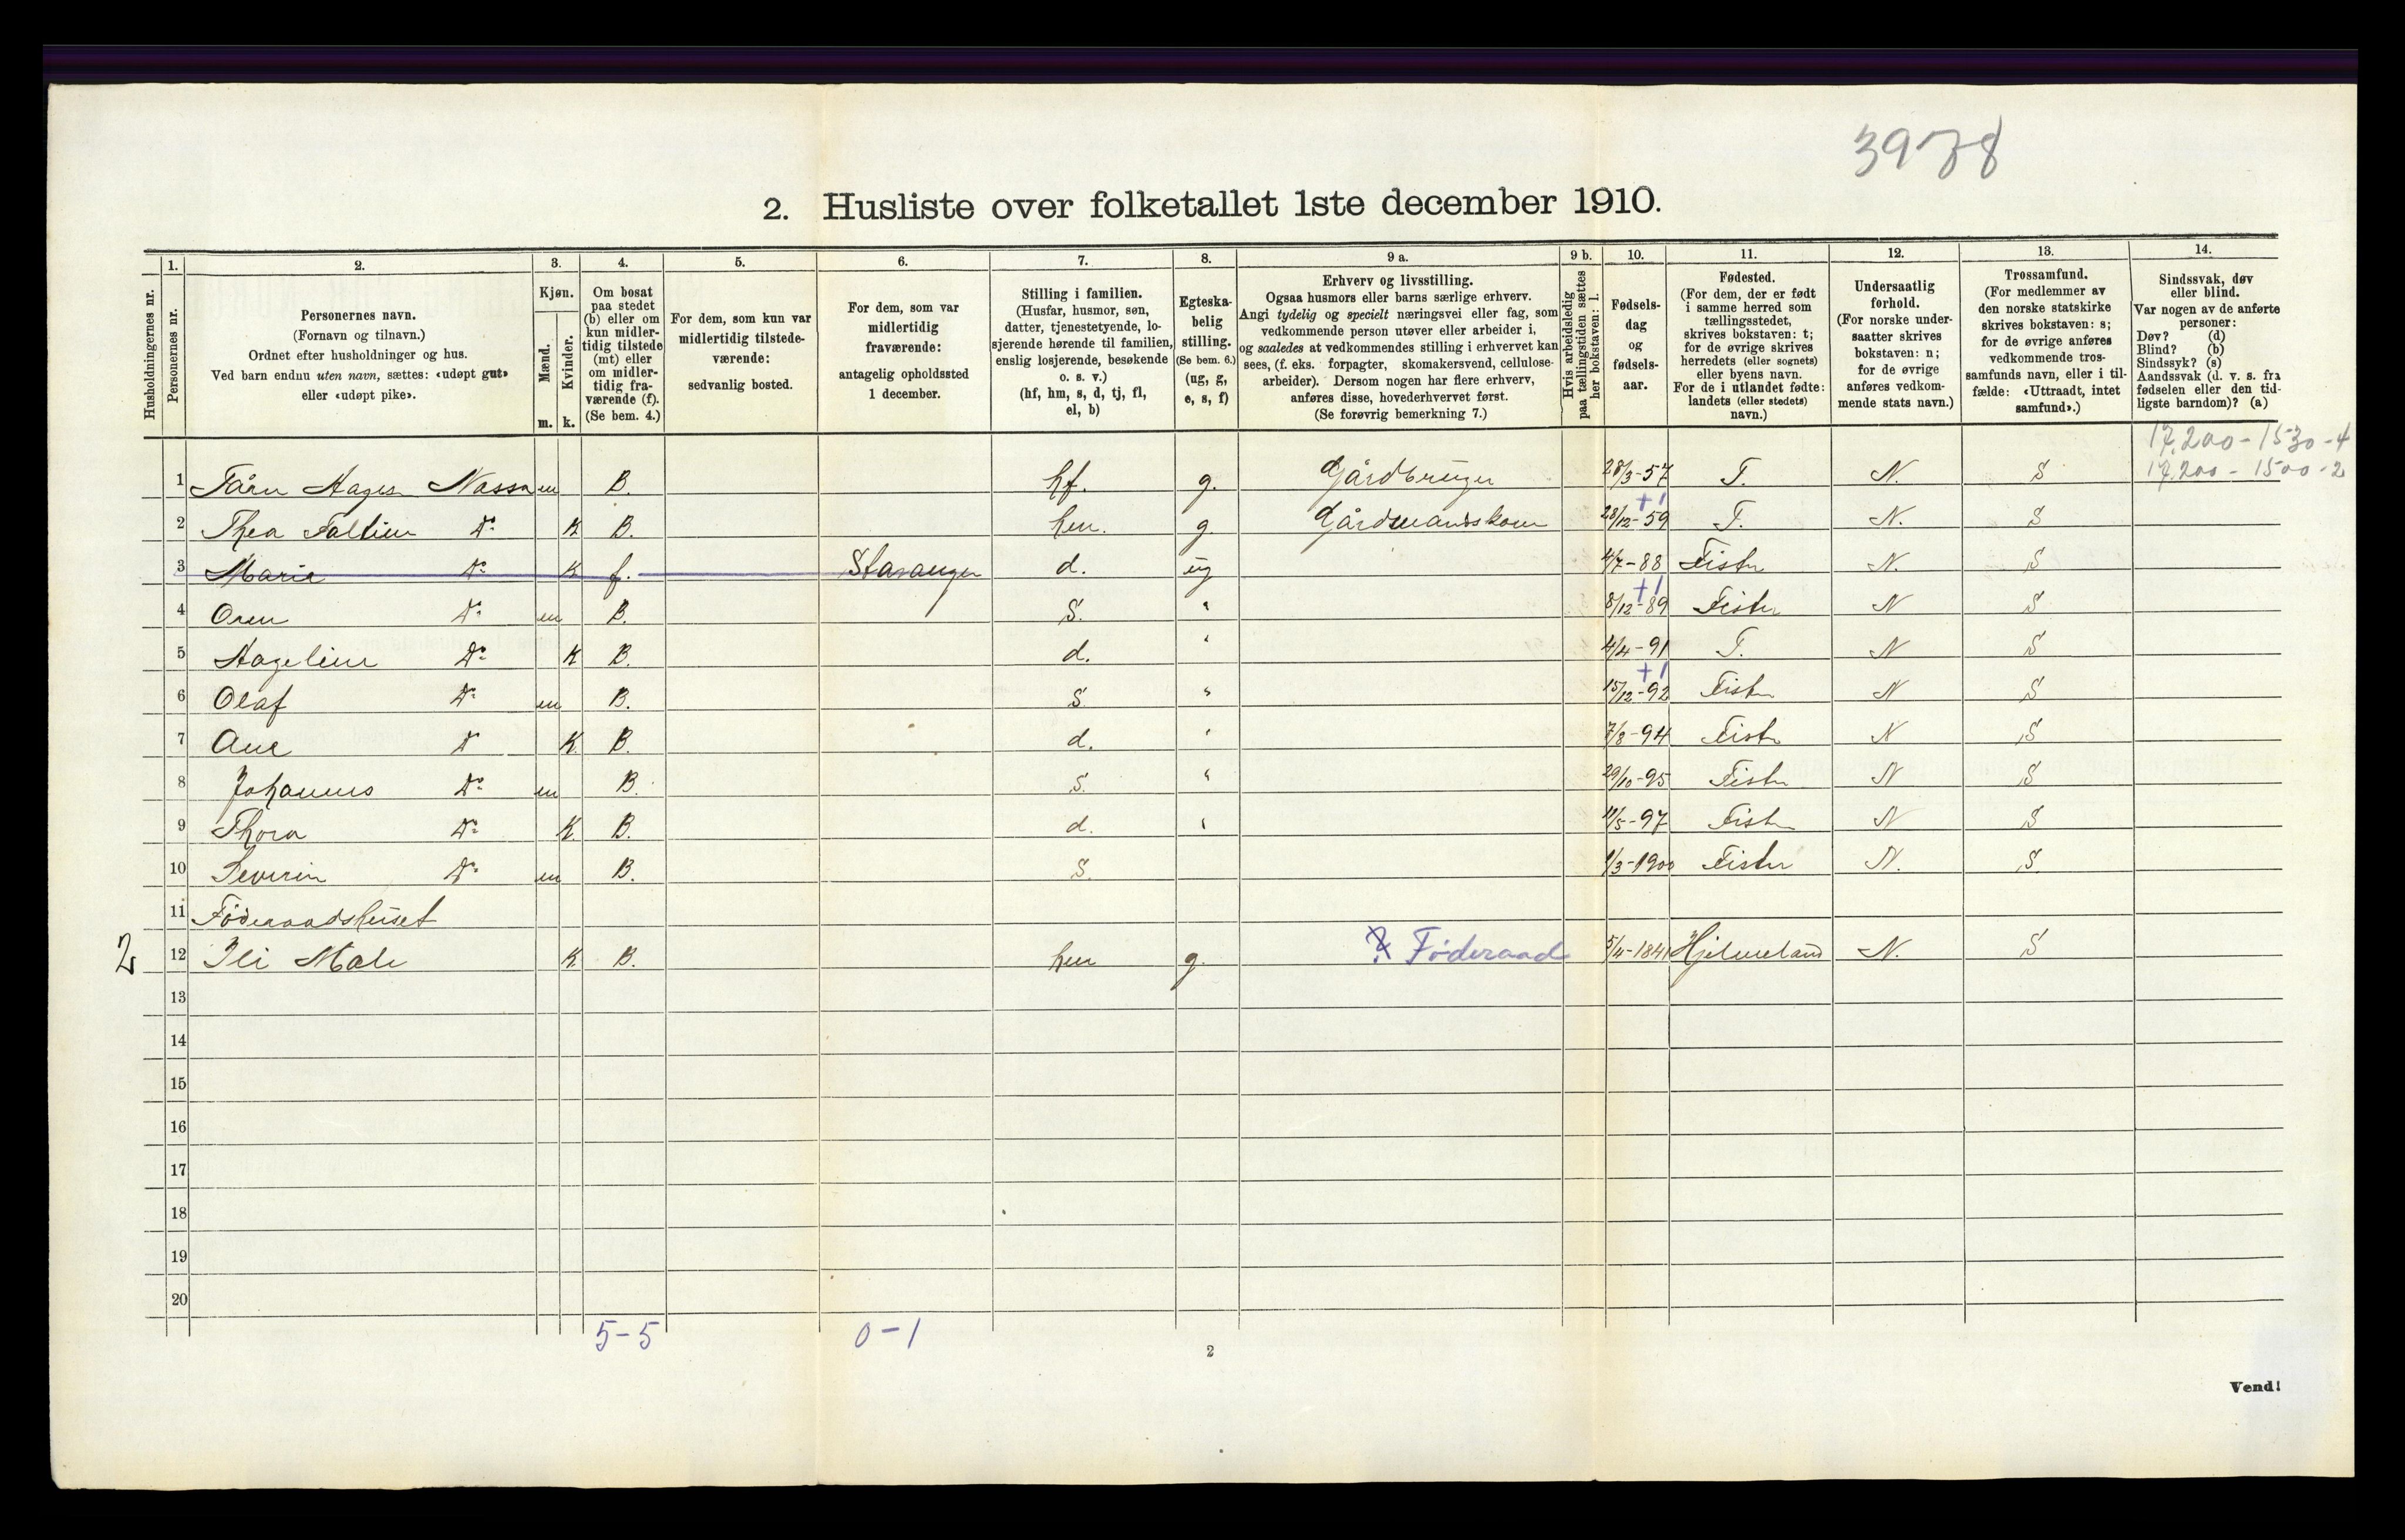 3978
2. Husliste over folketallet 1ste december 1910.
Husholdningernes nr.
1. Personernes nr.
2. Personernes navn.
(Fornavn og tilnavn.)
Ordnet efter husholdninger og hus.
Ved barn endnu uten navn, sættes: «udøpt gut»
eller «udøpt pike».
3. Kjøn.
Mænd. m.
Kvinder. k.
4. Om bosat
paa stedet
(b) eller om
kun midler-
tidig tilstede
(mt) eller
om midler-
tidig fra-
værende (f).
(Se bem. 4.)
5. For dem, som kun var
midlertidig tilstede-
værende:
sedvanlig bosted.
6. For dem, som var
midlertidig
fraværende:
antagelig opholdssted
1 december.
7. Stilling i familien.
(Husfar, husmor, søn,
datter, tjenestetyende, lo-
sjerende hørende til familien,
enslig losjerende, besøkende
o. s. v.)
(hf, hm, s, d, tj, fl,
el, b)
8. Egteska-
belig
stilling.
(Se bem. 6.)
(ug, g,
e, s, f)
9 a. Erhverv og livsstilling.
Ogsaa husmors eller barns særlige erhverv.
Angi tydelig og specielt næringsvei eller fag, som
vedkommende person utøver eller arbeider i,
og saaledes at vedkommendes stilling i erhvervet kan
sees, (f. eks. forpagter, skomakersvend, cellulose-
arbeider). Dersom nogen har flere erhverv,
anføres disse, hovederhvervet først.
(Se forøvrig bemerkning 7.)
9 b. Hvis arbeidsledig
paa tællingstiden sættes
her bokstaven: l.
10. Fødsels-
dag
og
fødsels-
aar.
11. Fødested.
(For dem, der er født
i samme herred som
tællingsstedet,
skrives bokstaven: t;
for de øvrige skrives
herredets (eller sognets)
eller byens navn.
For de i utlandet fødte:
landets (eller stedets)
navn.)
12. Undersaatlig
forhold.
(For norske under-
saatter skrives
bokstaven: n;
for de øvrige
anføres vedkom-
mende stats navn.)
13. Trossamfund.
(For medlemmer av
den norske statskirke
skrives bokstaven: s;
for de øvrige anføres
vedkommende tros-
samfunds navn, eller i til-
fælde: «Uttraadt, intet
samfund».)
14. Sindssvak, døv
eller blind.
Var nogen av de anførte
personer:
Døv? (d)
Blind? (b)
Sindssyk? (s)
Aandssvak (d. v. s. fra
fødselen eller den tid-
ligste barndom)? (a)
17.200 - 1530 - 4
17.200 - 1500 - 2
1 Hagen m B. hf. g. Gårdbruger 28/3-57 T. N. S
+1
2 Thea Do K B. hm. g. Gårdmandskone 28/12-59 T. N. S
3 Marie Do K f. Stavanger d. ug 4/7-88 Fister N. S
+1
4 Do m B. S. " 8/12-89 Fister N S
5 Hageline Do K B. d. " 4/4-91 T. N S
+1
6 Olaf Do m B. S " 15/12-92 Fister N S
7 Ane D K. B. d. " 7/8-94 Fister N S
8 Johannes Do m B. S. " 29/10-95 Fister N S
9 Thora Do K. B. d. " 11/5-97 Fister N S
10 Severin Do m B. S. 1/3-1900 Fister N. S.
11 Föderaadshuset
2 12 K B. hm g. ? Föderaad 5/4-1841 Hjelmeland N. S
13
14
15
16
17
18
19
20
5-5 0-1
2
Vend!